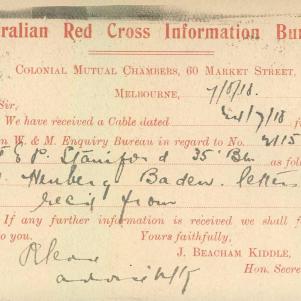 ralian Red Cross Information Bu
Colonial Mutual Chambers, 60 Market Street,
Melbourne, 7/8/18.
Sir,
We have received a Cable dated 24/7/18 fo
n W. & M. Enquiry Bureau in regard to No. 2/15
& P. Staniford 35 Bn
Heuberg Baden. letters
recd from
If any further information is received we shall f
to you. Yours faithfully,
Please
J. BEACHAM KIDDLE,
Hon. Secre